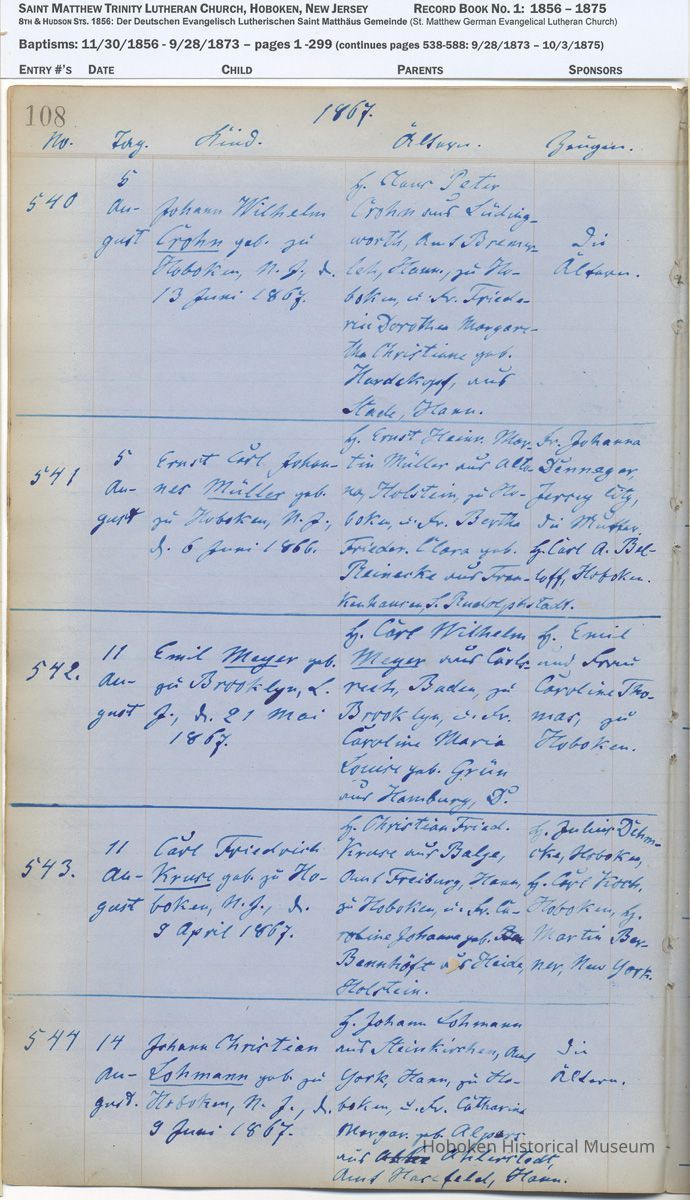 SAINT MATTHEW TRINITY LUTHERAN CHURCH, HOBOKEN, NEW JERSEY RECORD BOOK NO. 1: 1856 – 1875
8TH & HUDSON STS. 1856: Der Deutschen Evangelisch Lutherischen Saint Matthäus Gemeinde (St. Matthew German Evangelical Lutheran Church)
Baptisms: 11/30/1856 - 9/28/1873 – pages 1 -299 (continues pages 538-588: 9/28/1873 – 10/3/1875)
ENTRY #'S DATE CHILD PARENTS SPONSORS
108 1867.
No. Tag. Kind. Ältern. Zeugen.
540
5
Au-
gust
Johann Wilhelm
Crohn geb. zu
Hoboken, N. J., d.
13 Juni 1867.
H. Claus Peter
Crohn aus Lüding-
worth, Amt Bremer-
leh, Hann., zu Ho-
boken, u. Fr. Friede-
rica Dorothea Margare-
tha Christiane geb.
Hardekopf, aus
Stade, Hann.
Die
Ältern.
541
5
Au-
gust
Ernst Carl Johan-
nes Müller geb.
zu Hoboken, N. J.,
d. 6 Juni 1866.
H. Ernst Heinr. Mar-
tin Müller aus Alto-
na, Holstein, zu Ho-
boken, u. Fr. Bertha
Frieder. Clara geb.
Reinecke aus Fran-
kenhausen, S. Rudolphstadt.
Fr. Johanna
Denneger,
Jersey City,
die Mutter.
H. Carl A. Bel-
loff, Hoboken.
542.
11
Au-
gust
Emil Meyer geb.
zu Brooklyn, L.
J., d. 21 Mai
1867.
H. Carl Wilhelm
Meyer aus Carls-
ruh, Baden, zu
Brooklyn, u. Fr.
Caroline Maria
Louise geb. Grün
aus Hamburg, D.
H. Emil
und Frau
Caroline Tho-
mas, zu
Hoboken.
543.
11
Au-
gust
Carl Friedrich
Kruse geb. zu Ho-
boken, N. J., d.
9 April 1867.
H. Christian Fried.
Kruse aus Balje,
Amt Freiburg, Hann,
zu Hoboken, u. Fr. Ca-
roline Johanna geb.
Bannhöft aus Heide,
Holstein.
H. Julius Dehm-
cke, Hoboken,
H. Carl Koch,
Hoboken, H.
Martin Ber-
ner, New York.
544
14
Au-
gust.
Johann Christian
Lohmann geb. zu
Hoboken, N. J., d.
9 Juni 1867.
H. Johann Lohmann
aus Steinkirchen, Amt
York, Hann, zu Ho-
boken, u. Fr. Catharina
Margar. geb. Alpers
aus Ahlerstedt,
Amt Harsefeld, Hann.
Die
Ältern.
Hoboken Historical Museum